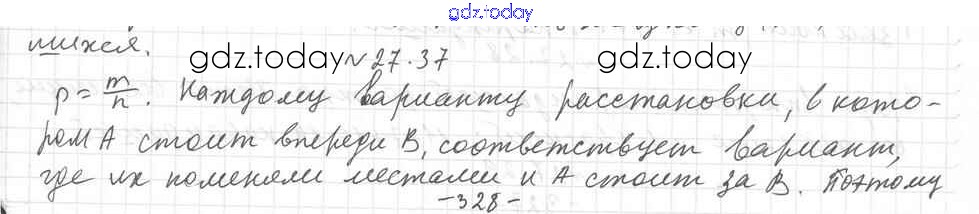 gdz.today
шихся.
gdz.today №27.37 gdz.today
p = m/n. Каждому варианту расстановки, в кото-
ром А стоит впереди В, соответствует вариант,
где их поменяли местами и А стоит за В. Поэтому
-328-